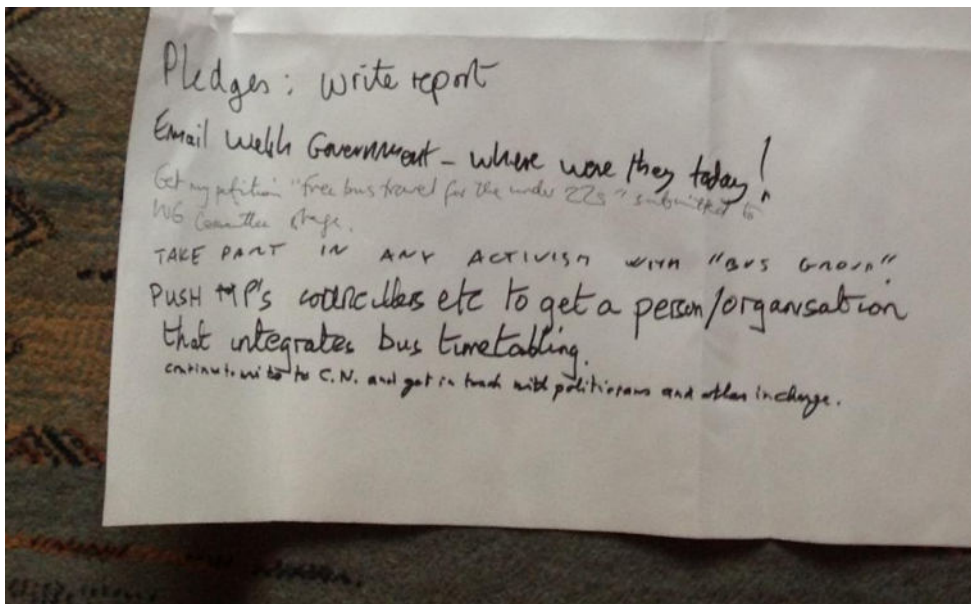 Pledges: write report
Email Welsh Government - where were they today!
Get my petition "free bus travel for the under 22s" submitted to
WG Committee stage.
TAKE PART IN ANY ACTIVISM WITH "BUS GROUP".
PUSH MP's councillers etc to get a person/organisation
that integrates bus timetabling.
continue to write to C.N. and get in touch with politicians and others in charge.